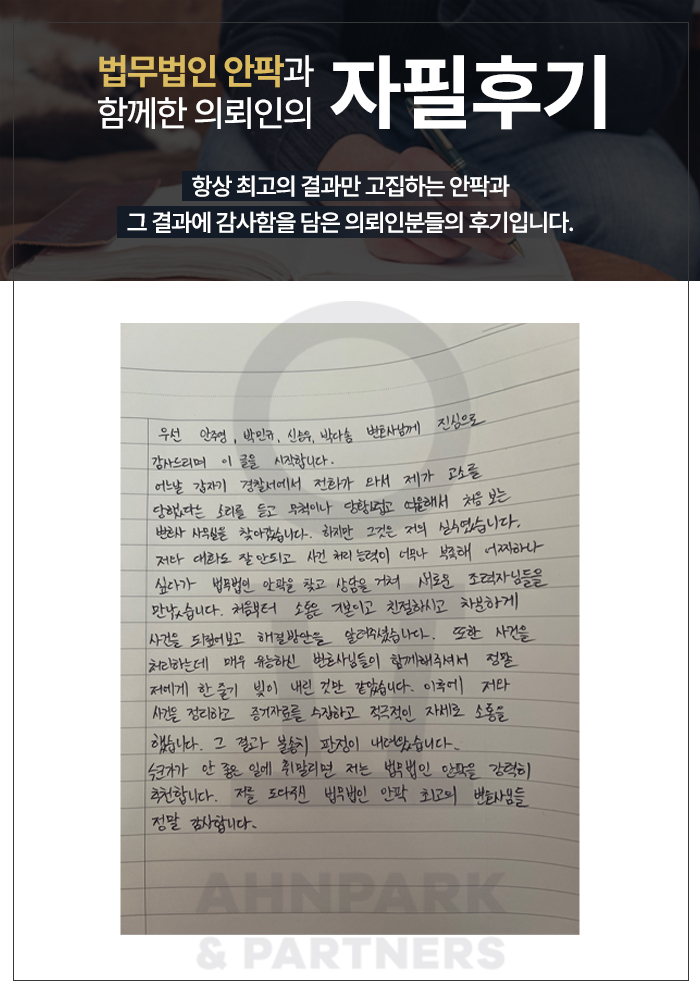 법무법인 안팍과
함께한 의뢰인의
자필후기
항상 최고의 결과만 고집하는 안팍과
그 결과에 감사함을 담은 의뢰인분들의 후기입니다.
우선 안주영, 박민규, 신승우, 박다솜 변호사님께 진심으로
감사드리며 이 글을 시작합니다.
어느날 갑자기 경찰서에서 전화가 와서 제가 고소를
당했다는 소리를 듣고 무척이나 당황했고 억울해서 처음 보는
변호사 사무실을 찾아갔습니다. 하지만 그것은 저의 실수였습니다.
저와 대화도 잘 안되고 사건 처리 능력이 너무나 부족해 어찌하나
싶다가 법무법인 안팍을 찾고 상담을 거쳐 새로운 조력자님들을
만났습니다. 처음부터 소통은 기본이고 친절하시고 차분하게
사건을 되짚어보고 해결방안을 알려주셨습니다. 또한 사건을
처리하는데 매우 유능하신 변호사님들이 함께해주셔서 정말
저에게 한 줄기 빛이 내린 것만 같았습니다. 이후에 저와
사건을 정리하고 증거자료를 수집하고 적극적인 자세로 소통을
했습니다. 그 결과 불송치 판정이 내려왔습니다.
누군가가 안 좋은 일에 휘말리면 저는 법무법인 안팍을 강력히
추천합니다. 저를 도와주신 법무법인 안팍 최고의 변호사님들
정말 감사합니다.
AHNPARK
& PARTNERS